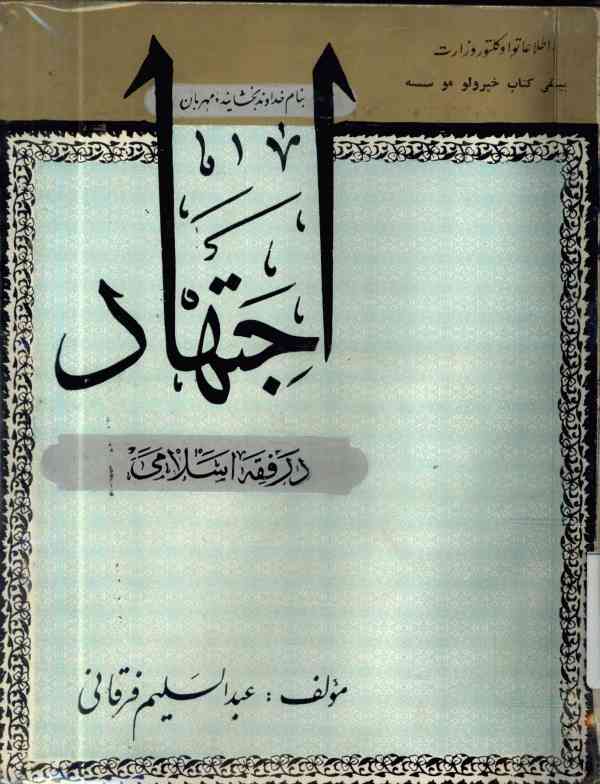 اطلاعاتو او کلتور وزارت
بیهقی کتاب خپرولو موسسه
بنام خداوند بخشاینده مهربان
اجتهاد
در فقه اسلامی
مؤلف : عبدالسلیم فرقانی